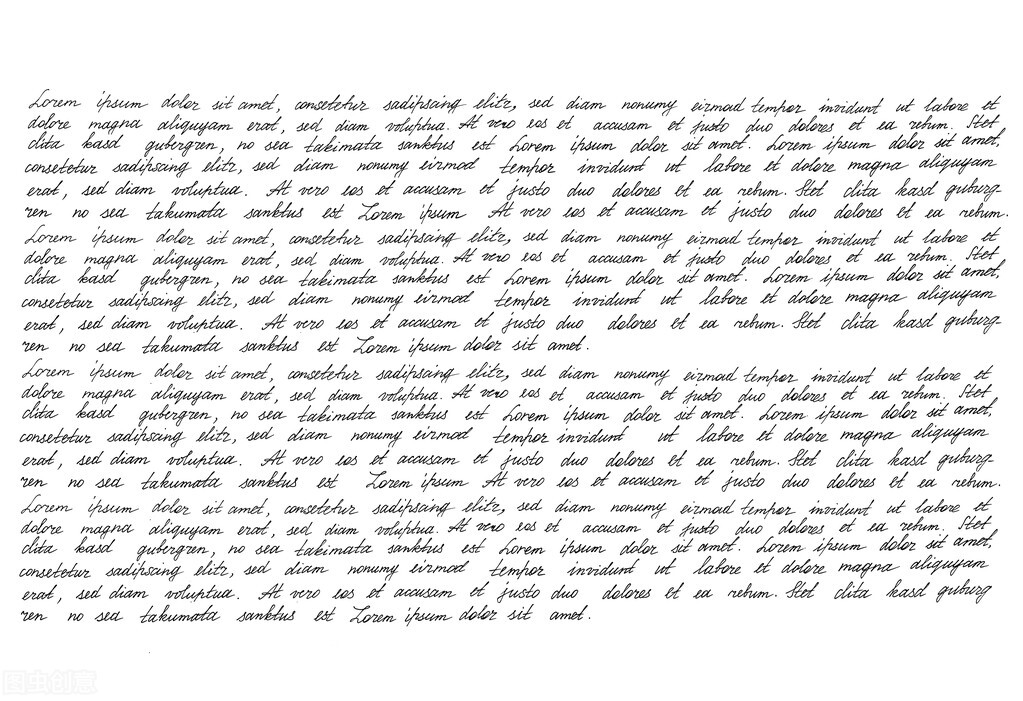 Lorem ipsum dolor sit amet, consetetur sadipscing elitr, sed diam nonumy eirmod tempor invidunt ut labore et
dolore magna aliquyam erat, sed diam voluptua. At vero eos et accusam et justo duo dolores et ea rebum. Stet
clita kasd gubergren, no sea takimata sanktus est Lorem ipsum dolor sit amet. Lorem ipsum dolor sit amet,
consetetur sadipscing elitr, sed diam nonumy eirmod tempor invidunt ut labore et dolore magna aliquyam
erat, sed diam voluptua. At vero eos et accusam et justo duo dolores et ea rebum. Stet clita kasd guburg-
ren no sea takumata sanktus est Lorem ipsum At vero eos et accusam et justo duo dolores et ea rebum.
Lorem ipsum dolor sit amet, consetetur sadipscing elitr, sed diam nonumy eirmod tempor invidunt ut labore et
dolore magna aliquyam erat, sed diam voluptua. At vero eos et accusam et justo duo dolores et ea rebum. Stet
clita kasd gubergren, no sea takimata sanktus est Lorem ipsum dolor sit amet. Lorem ipsum dolor sit amet,
consetetur sadipscing elitr, sed diam nonumy eirmod tempor invidunt ut labore et dolore magna aliquyam
erat, sed diam voluptua. At vero eos et accusam et justo duo dolores et ea rebum. Stet clita kasd guburg-
ren no sea takumata sanktus est Lorem ipsum dolor sit amet.
Lorem ipsum dolor sit amet, consetetur sadipscing elitr, sed diam nonumy eirmod tempor invidunt ut labore et
dolore magna aliquyam erat, sed diam voluptua. At vero eos et accusam et justo duo dolores et ea rebum. Stet
clita kasd gubergren, no sea takimata sanktus est Lorem ipsum dolor sit amet. Lorem ipsum dolor sit amet,
consetetur sadipscing elitr, sed diam nonumy eirmod tempor invidunt ut labore et dolore magna aliquyam
erat, sed diam voluptua. At vero eos et accusam et justo duo dolores et ea rebum. Stet clita kasd guburg-
ren no sea takumata sanktus est Lorem ipsum At vero eos et accusam et justo duo dolores et ea rebum.
Lorem ipsum dolor sit amet, consetetur sadipscing elitr, sed diam nonumy eirmod tempor invidunt ut labore et
dolore magna aliquyam erat, sed diam voluptua. At vero eos et accusam et justo duo dolores et ea rebum. Stet
clita kasd gubergren, no sea takimata sanktus est Lorem ipsum dolor sit amet. Lorem ipsum dolor sit amet,
consetetur sadipscing elitr, sed diam nonumy eirmod tempor invidunt ut labore et dolore magna aliquyam
erat, sed diam voluptua. At vero eos et accusam et justo duo dolores et ea rebum. Stet clita kasd guburg
ren no sea takumata sanktus est Lorem ipsum dolor sit amet.
图虫创意